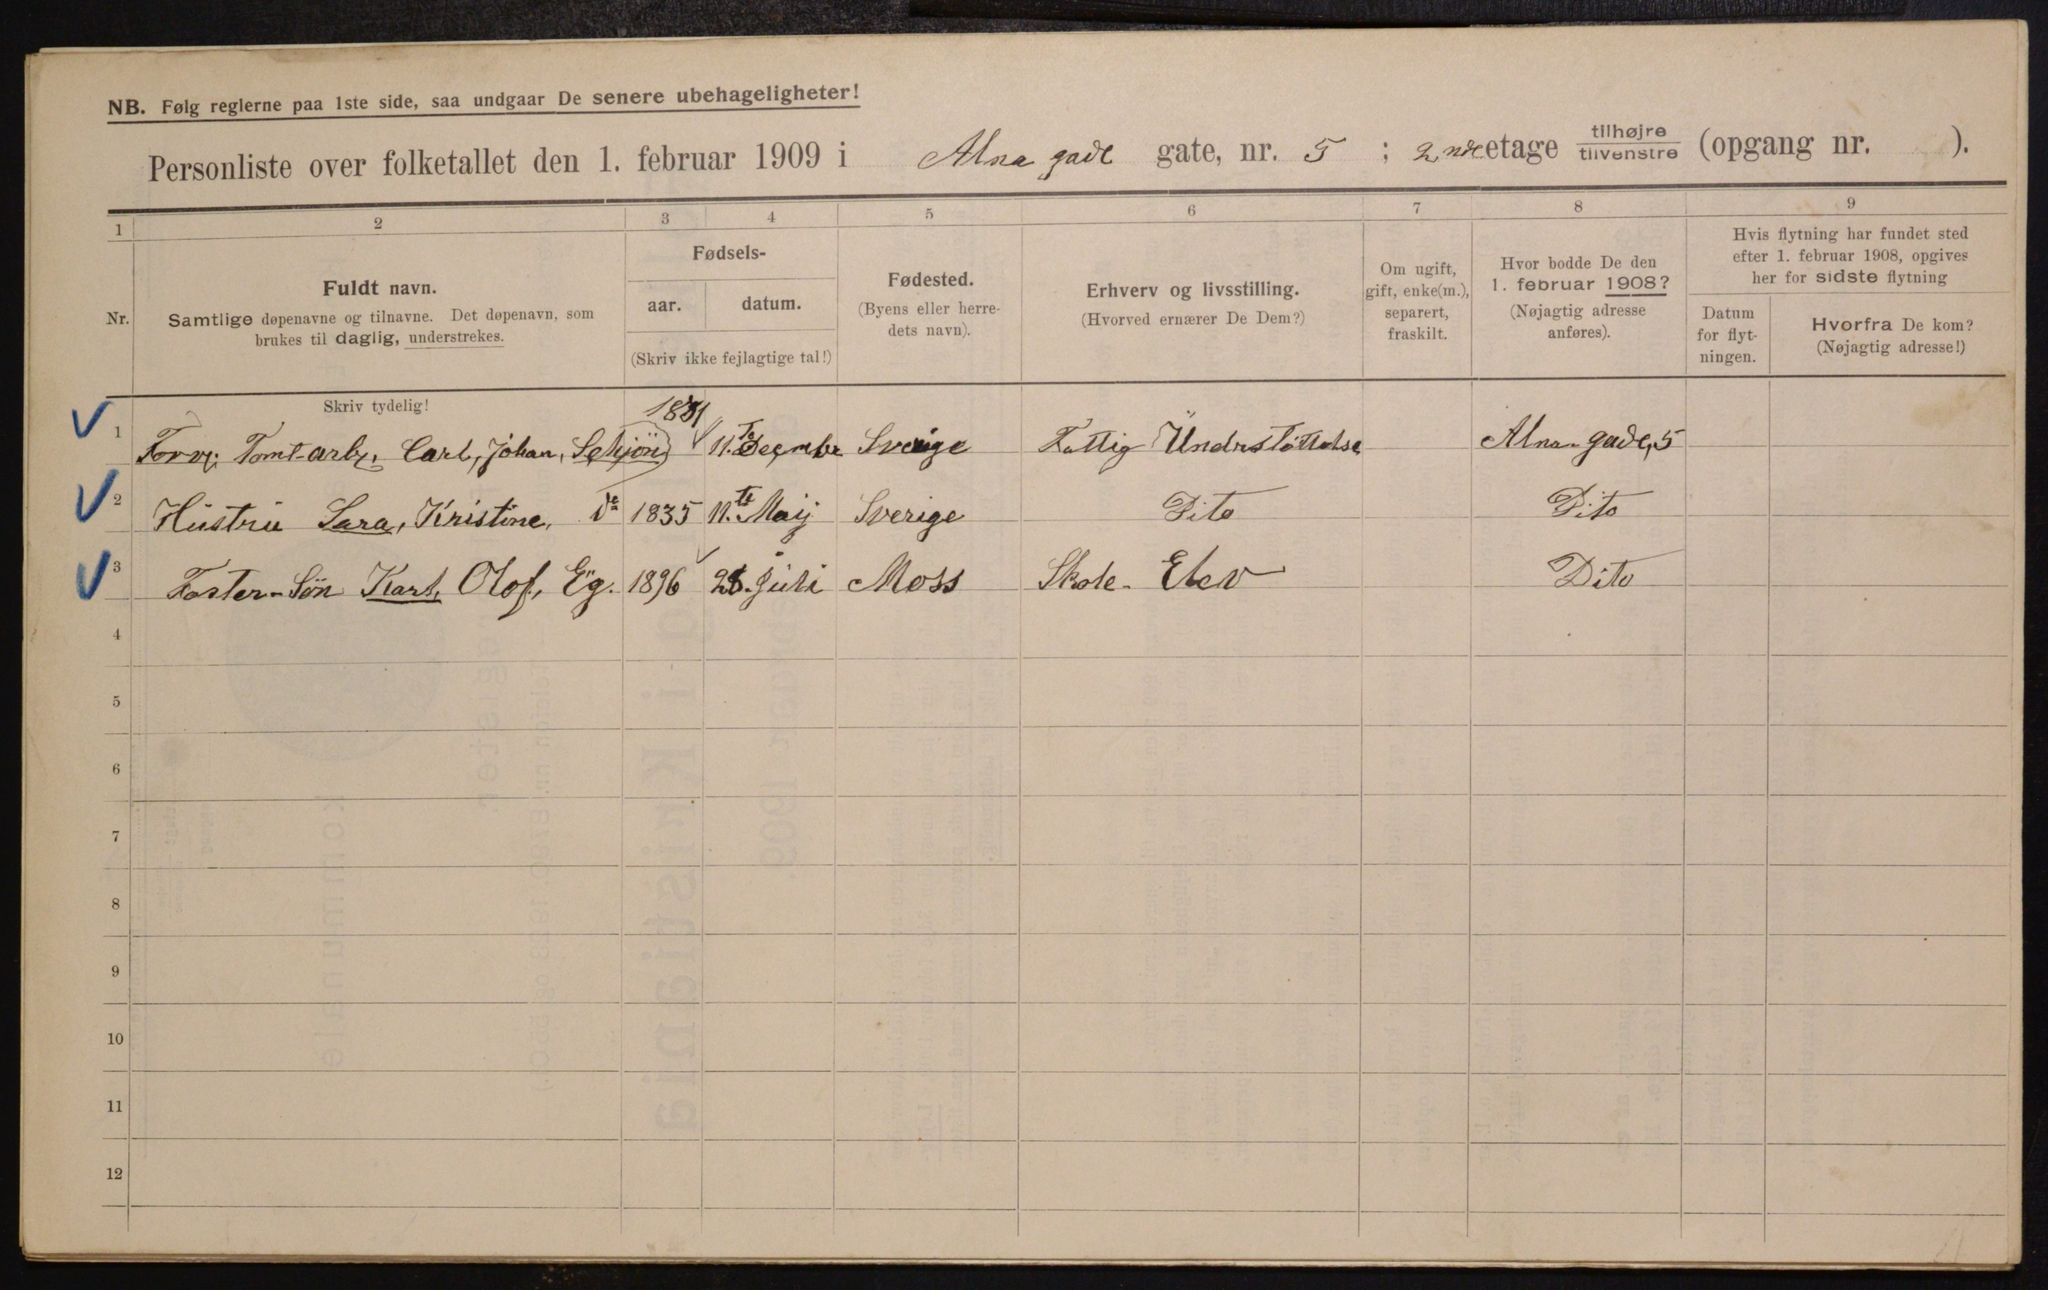 NB. Følg reglerne paa 1ste side, saa undgaar De senere ubehageligheter!
Personliste over folketallet den 1. februar 1909 i Alna gade gate, nr. 5 ; 2nde etage tilhøjre tilvenstre (opgang nr. ).
1 2 3 4 5 6 7 8 9
Nr.
Fuldt navn.
Samtlige døpenavne og tilnavne. Det døpenavn, som
brukes til daglig, understrekes.
Fødsels-
aar. datum.
(Skriv ikke fejlagtige tal!)
Fødested.
(Byens eller herre-
dets navn).
Erhverv og livsstilling.
(Hvorved ernærer De Dem?)
Om ugift,
gift, enke(m.),
separert,
fraskilt.
Hvor bodde De den
1. februar 1908?
(Nøjagtig adresse
anføres).
Hvis flytning har fundet sted
efter 1. februar 1908, opgives
her for sidste flytning
Datum
for flyt-
ningen.
Hvorfra De kom?
(Nøjagtig adresse!)
Skriv tydelig!
1 Forv. Tomt-arb, Carl, Johan, Schjön 11.te Decembr Sverige Fattig Understöttelse Alna-gade, 5
2 Hustru Sara, Kristine, Do 1835 11.te Maij Sverige Dito Dito
3 Foster-Søn Karl, Olof, Eg. 1896 28. Juli Moss Skole-Elev Dito
4
5
6
7
8
9
10
11
12